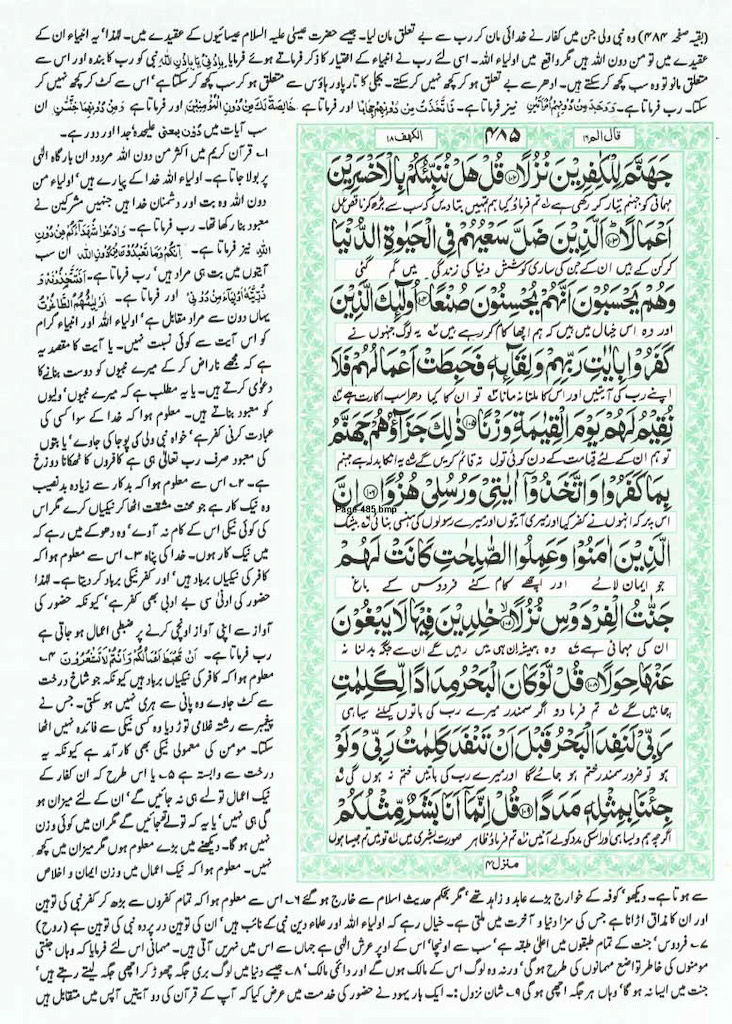 (بقیہ صفحہ ۴۸۴) وہ نبی ولی جن میں کفار نے خدائی مان کر رب سے بے تعلق مان لیا۔ جیسے حضرت عیسیٰ علیہ السلام عیسائیوں کے عقیدے میں۔ لہٰذا' یہ انبیاء ان کے
عقیدے میں تو من دون اللہ ہیں مگر واقع میں اولیاء اللہ۔ اسی لئے رب نے انبیاء کے اختیار کا ذکر فرماتے ہوئے فرمایا بِاِذْنِیْ یا بِاِذْنِ اللہِ نبی کو رب کا بندہ اور اس سے
متعلق مانو تو وہ سب کچھ کر سکتے ہیں۔ ادھر سے بے تعلق ہو کر کچھ نہیں کر سکتے۔ بجلی کا تار پاور ہاؤس سے متعلق ہو کر سب کچھ کر سکتا ہے' اس سے کٹ کر کچھ نہیں کر
سکتا۔ رب فرماتا ہے۔ وَوَجَدَ مِنْ دُوْنِهِمُ امْرَاَتَیْنِ نیز فرماتا ہے۔ فَاتَّخَذَتْ مِنْ دُوْنِهِمْ حِجَابًا اور فرماتا ہے خَالِصَةً لَّكَ مِنْ دُوْنِ الْمُؤْمِنِیْنَ اور فرماتا ہے وَمِنْ دُوْنِهِمَا جَنَّتٰنِ ان
سب آیات میں دُوْن بمعنی علیحدہ جدا اور دور ہے۔
قال الم ۱۶
۴۸۵
الکهف ۱۸
جَهَنَّمَ لِلْكٰفِرِیْنَ نُزُلًا ﴿۱۰۲﴾ قُلْ هَلْ نُنَبِّئُكُمْ بِالْاَخْسَرِیْنَ
مہمانی کو جہنم تیار کر رکھی ہے تم فرماؤ کیا ہم تمہیں بتا دیں کہ سب سے بڑھ کر ناقص عمل
اَعْمَالًا ﴿۱۰۳﴾ اَلَّذِیْنَ ضَلَّ سَعْیُهُمْ فِی الْحَیٰوةِ الدُّنْیَا
کن کے ہیں ان کے جن کی ساری کوشش دنیا کی زندگی میں گم گئی
وَهُمْ یَحْسَبُوْنَ اَنَّهُمْ یُحْسِنُوْنَ صُنْعًا ﴿۱۰۴﴾ اُولٰٓىِٕكَ الَّذِیْنَ
اور وہ اس خیال میں ہیں کہ ہم اچھا کام کر رہے ہیں یہ لوگ جنہوں نے
كَفَرُوْا بِاٰیٰتِ رَبِّهِمْ وَلِقَآىِٕهٖ فَحَبِطَتْ اَعْمَالُهُمْ فَلَا
اپنے رب کی آیتیں اور اس کا ملنا نہ مانا تو ان کا کیا دھرا سب اکارت ہے
نُقِیْمُ لَهُمْ یَوْمَ الْقِیٰمَةِ وَزْنًا ﴿۱۰۵﴾ ذٰلِكَ جَزَآؤُهُمْ جَهَنَّمُ
تو ہم ان کے لئے قیامت کے دن کوئی تول نہ قائم کریں گے یہ ان کا بدلہ ہے جہنم
بِمَا كَفَرُوْا وَاتَّخَذُوْۤا اٰیٰتِیْ وَرُسُلِیْ هُزُوًا ﴿۱۰۶﴾ اِنَّ
Page-485.bmp
اس پر کہ انہوں نے کفر کیا اور میری آیتوں اور میرے رسولوں کی ہنسی بنائی بیشک
الَّذِیْنَ اٰمَنُوْا وَعَمِلُوا الصّٰلِحٰتِ كَانَتْ لَهُمْ
جو ایمان لائے اور اچھے کام کئے فردوس کے باغ
جَنّٰتُ الْفِرْدَوْسِ نُزُلًا ﴿۱۰۷﴾ خٰلِدِیْنَ فِیْهَا لَا یَبْغُوْنَ
ان کی مہمانی ہے وہ ہمیشہ ان ہی میں رہیں گے ان سے جگہ بدلنا نہ
عَنْهَا حِوَلًا ﴿۱۰۸﴾ قُلْ لَّوْ كَانَ الْبَحْرُ مِدَادًا لِّكَلِمٰتِ
چاہیں گے تم فرما دو اگر سمندر میرے رب کی باتوں کیلئے سیاہی
رَبِّیْ لَنَفِدَ الْبَحْرُ قَبْلَ اَنْ تَنْفَدَ كَلِمٰتُ رَبِّیْ وَلَوْ
ہو تو ضرور سمندر ختم ہو جائے گا اور میرے رب کی باتیں ختم نہ ہوں گی
جِئْنَا بِمِثْلِهٖ مَدَدًا ﴿۱۰۹﴾ قُلْ اِنَّمَاۤ اَنَا بَشَرٌ مِّثْلُكُمْ
اگرچہ ہم ویسا ہی اور اسکی مدد کو لے آئیں تم فرماؤ ظاہر صورت بشری میں تو میں تم جیسا ہوں
منزل ۴
۱۔ قرآن کریم میں اکثر من دون اللہ مردود ان بارگاہ الٰہی
پر بولا جاتا ہے۔ اولیاء اللہ خدا کے پیارے ہیں' اولیاء من
دون اللہ وہ بت اور دشمنان خدا ہیں جنہیں مشرکین نے
معبود بنا رکھا تھا۔ رب فرماتا ہے۔ وَادْعُوْا شُهَدَآءَكُمْ مِّنْ دُوْنِ
اللہِ نیز فرماتا ہے۔ اِنَّكُمْ وَمَا تَعْبُدُوْنَ مِنْ دُوْنِ اللہِ ان سب
آیتوں میں بت ہی مراد ہیں' رب فرماتا ہے۔ اَفَتَتَّخِذُوْنَهٗ وَ
ذُرِّیَّتَهٗۤ اَوْلِیَآءَ مِنْ دُوْنِیْ اور فرماتا ہے۔ اَوْلِیٰٓـُٔهُمُ الطَّاغُوْتُ
یہاں دون سے مراد مقابل ہے' اولیاء اللہ اور انبیاء کرام
کو اس آیت سے کوئی نسبت نہیں۔ یا آیت کا مقصد یہ
ہے کہ مجھے ناراض کر کے میرے نبیوں کو دوست بنانے کا
دعویٰ کرتے ہیں۔ یا یہ مطلب ہے کہ میرے نبیوں' ولیوں
کو معبود بناتے ہیں۔ معلوم ہوا کہ خدا کے سوا کسی کی
عبادت کرنی کفر ہے' خواہ نبی ولی کی پوجا کی جاوے' یا بتوں
کی معبود صرف رب تعالیٰ ہی ہے کافروں کا ٹھکانا دوزخ
ہے۔ ۲۔ اس سے معلوم ہوا کہ بدکار سے زیادہ بدنصیب
وہ نیک کار ہے جو محنت مشقت اٹھا کر نیکیاں کرے مگر اس
کی کوئی نیکی اس کے کام نہ آوے' وہ دھوکے میں رہے کہ
میں نیک کار ہوں۔ خدا کی پناہ ۳۔ اس سے معلوم ہوا کہ
کافر کی نیکیاں برباد ہیں' اور کفر نیکی برباد کر دیتا ہے۔ لہٰذا
حضور کی ادنیٰ سی بے ادبی بھی کفر ہے' کیونکہ حضور کی
آواز سے اپنی آواز اونچی کرنے پر ضبطی اعمال ہو جاتی ہے
رب فرماتا ہے۔ اَنْ تَحْبَطَ اَعْمَالُكُمْ وَاَنْتُمْ لَا تَشْعُرُوْنَ ۴۔
معلوم ہوا کہ کافر کی نیکیاں برباد ہیں کیونکہ جو شاخ درخت
سے کٹ جاوے وہ پانی سے ہری نہیں ہو سکتی۔ جس نے
پیغمبر سے رشتہ غلامی توڑ دیا وہ کسی نیکی سے فائدہ نہیں اٹھا
سکتا۔ مومن کی معمولی نیکی بھی کار آمد ہے کیونکہ یہ
درخت سے وابستہ ہے ۵۔ یا اس طرح کہ ان کفار کے
نیک اعمال تولے ہی نہ جائیں گے' ان کے لئے میزان ہو
گی ہی نہیں' یا یہ کہ تولے جائیں گے مگر ان میں کوئی وزن
نہیں ہو گا۔ دیکھنے میں بڑے معلوم ہوں مگر میزان میں کچھ
نہیں۔ معلوم ہوا کہ نیک اعمال میں وزن ایمان و اخلاص
سے ہوتا ہے۔ دیکھو' کوفہ کے خوارج بڑے عابد و زاہد تھے' مگر بحکم حدیث اسلام سے خارج ہو گئے ۶۔ اس سے معلوم ہوا کہ تمام کفروں سے بڑھ کر کفر نبی کی توہین
اور ان کا مذاق اڑانا ہے جس کی سزا دنیا و آخرت میں ملتی ہے۔ خیال رہے کہ اولیاء اللہ اور علماء دین نبی کے نائب ہیں' ان کی توہین در پردہ نبی کی توہین ہے (روح)
۷۔ فردوس' جنت کے تمام طبقوں میں اعلیٰ طبقہ ہے' سب سے اونچا' اس کے اوپر عرش الٰہی ہے جہاں سے اس میں نہریں آتی ہیں۔ مہمانی اس لئے فرمایا کہ وہاں جنتی
مومنوں کی خاطر تواضع مہمانوں کی طرح ہو گی' ورنہ وہ لوگ اس کے مالک ہوں گے اور دائمی مالک' ۸۔ جیسے دنیا میں لوگ بری جگہ چھوڑ کر اچھی جگہ لیتے رہتے ہیں'
جنت میں ایسا نہ ہو گا' وہاں ہر جگہ اچھی ہو گی ۹۔ شان نزول :۔ ایک بار یہود نے حضور کی خدمت میں عرض کیا کہ آپ کے قرآن کی دو آیتیں آپس میں متقابل ہیں